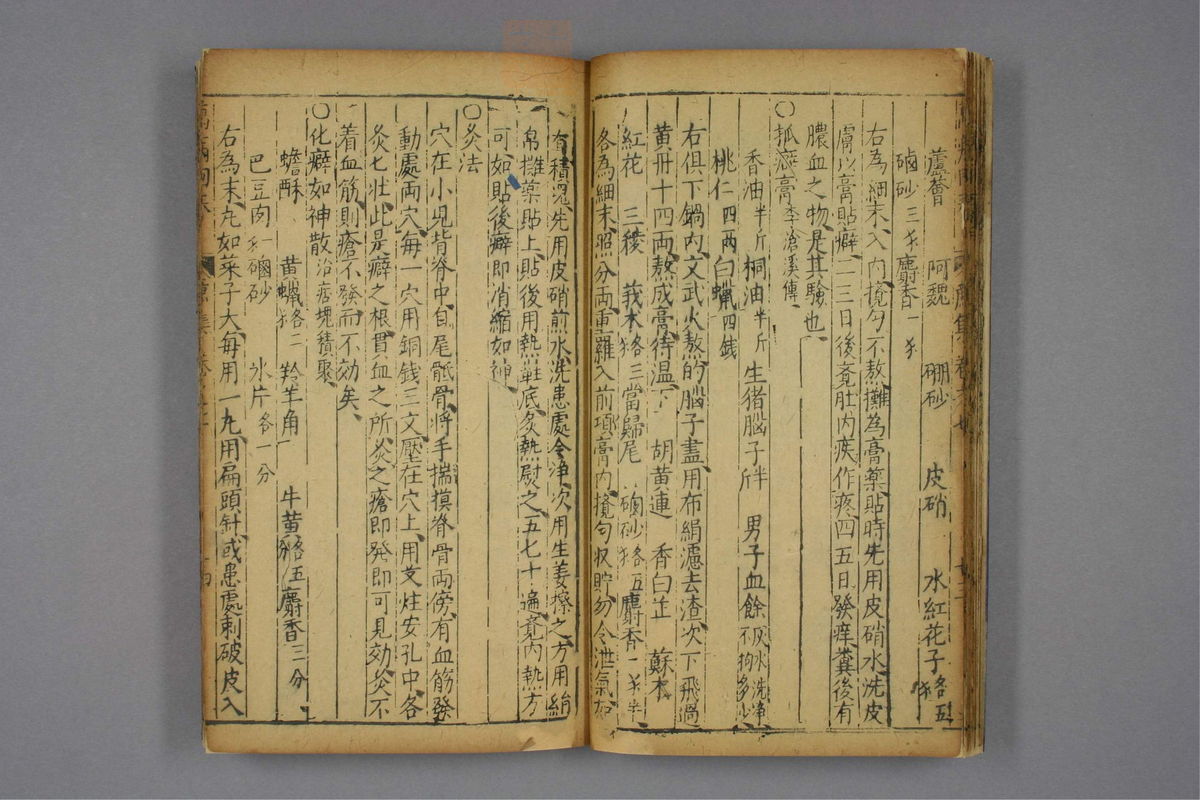 蘆薈 阿魏 硼砂 皮硝 水紅花子各五
硇砂三 麝香一
右為細末入內攪勻不熬攤為膏藥貼時先用皮硝水洗皮
膚以膏貼癖二三日後覓肚內疾作疼四五日發痒糞後有
膿血之物是其驗也
○抓癖膏李滄溪傳
香油半斤 桐油半斤 生猪腦子 男子血餘灰水洗净不拘多少
桃仁四兩 白蝋四銭
右俱下鍋內文武火熬的腦子盡用布絹濾去渣次下飛過
黃丹十四兩熬成膏待温下 胡黃連 香白芷 蘇木
紅花 三稜 莪术各三 當歸尾 硇砂各五 麝香一
各為細末照分兩重羅入前項膏內攪勻收貯勿令泄氣如
有積塊先用皮硝煎水洗患處令净次用生姜擦之方用絹
帛攤藥貼上貼後用熱鞋底炙熱熨之五七十遍覓內熱方
可如貼後癖即消縮如神
○灸法
穴在小児背脊中自尾骶骨將手揣摸脊骨兩傍有血筋發
動處兩穴每一穴用銅銭三文壓在穴上用艾炷安孔中各
灸七壯此是癖之根貫血之所灸之瘡即發即可見効灸不
着血筋則瘡不發而不効矣
○化癖如神散治痞塊積聚
蟾酥 黃蝋各二 羚羊角一 牛黃各五 麝香三分
巴豆肉 硇砂 氷片各一分
右為末丸如菜子大每用一丸用扁頭針或患處刺破皮入